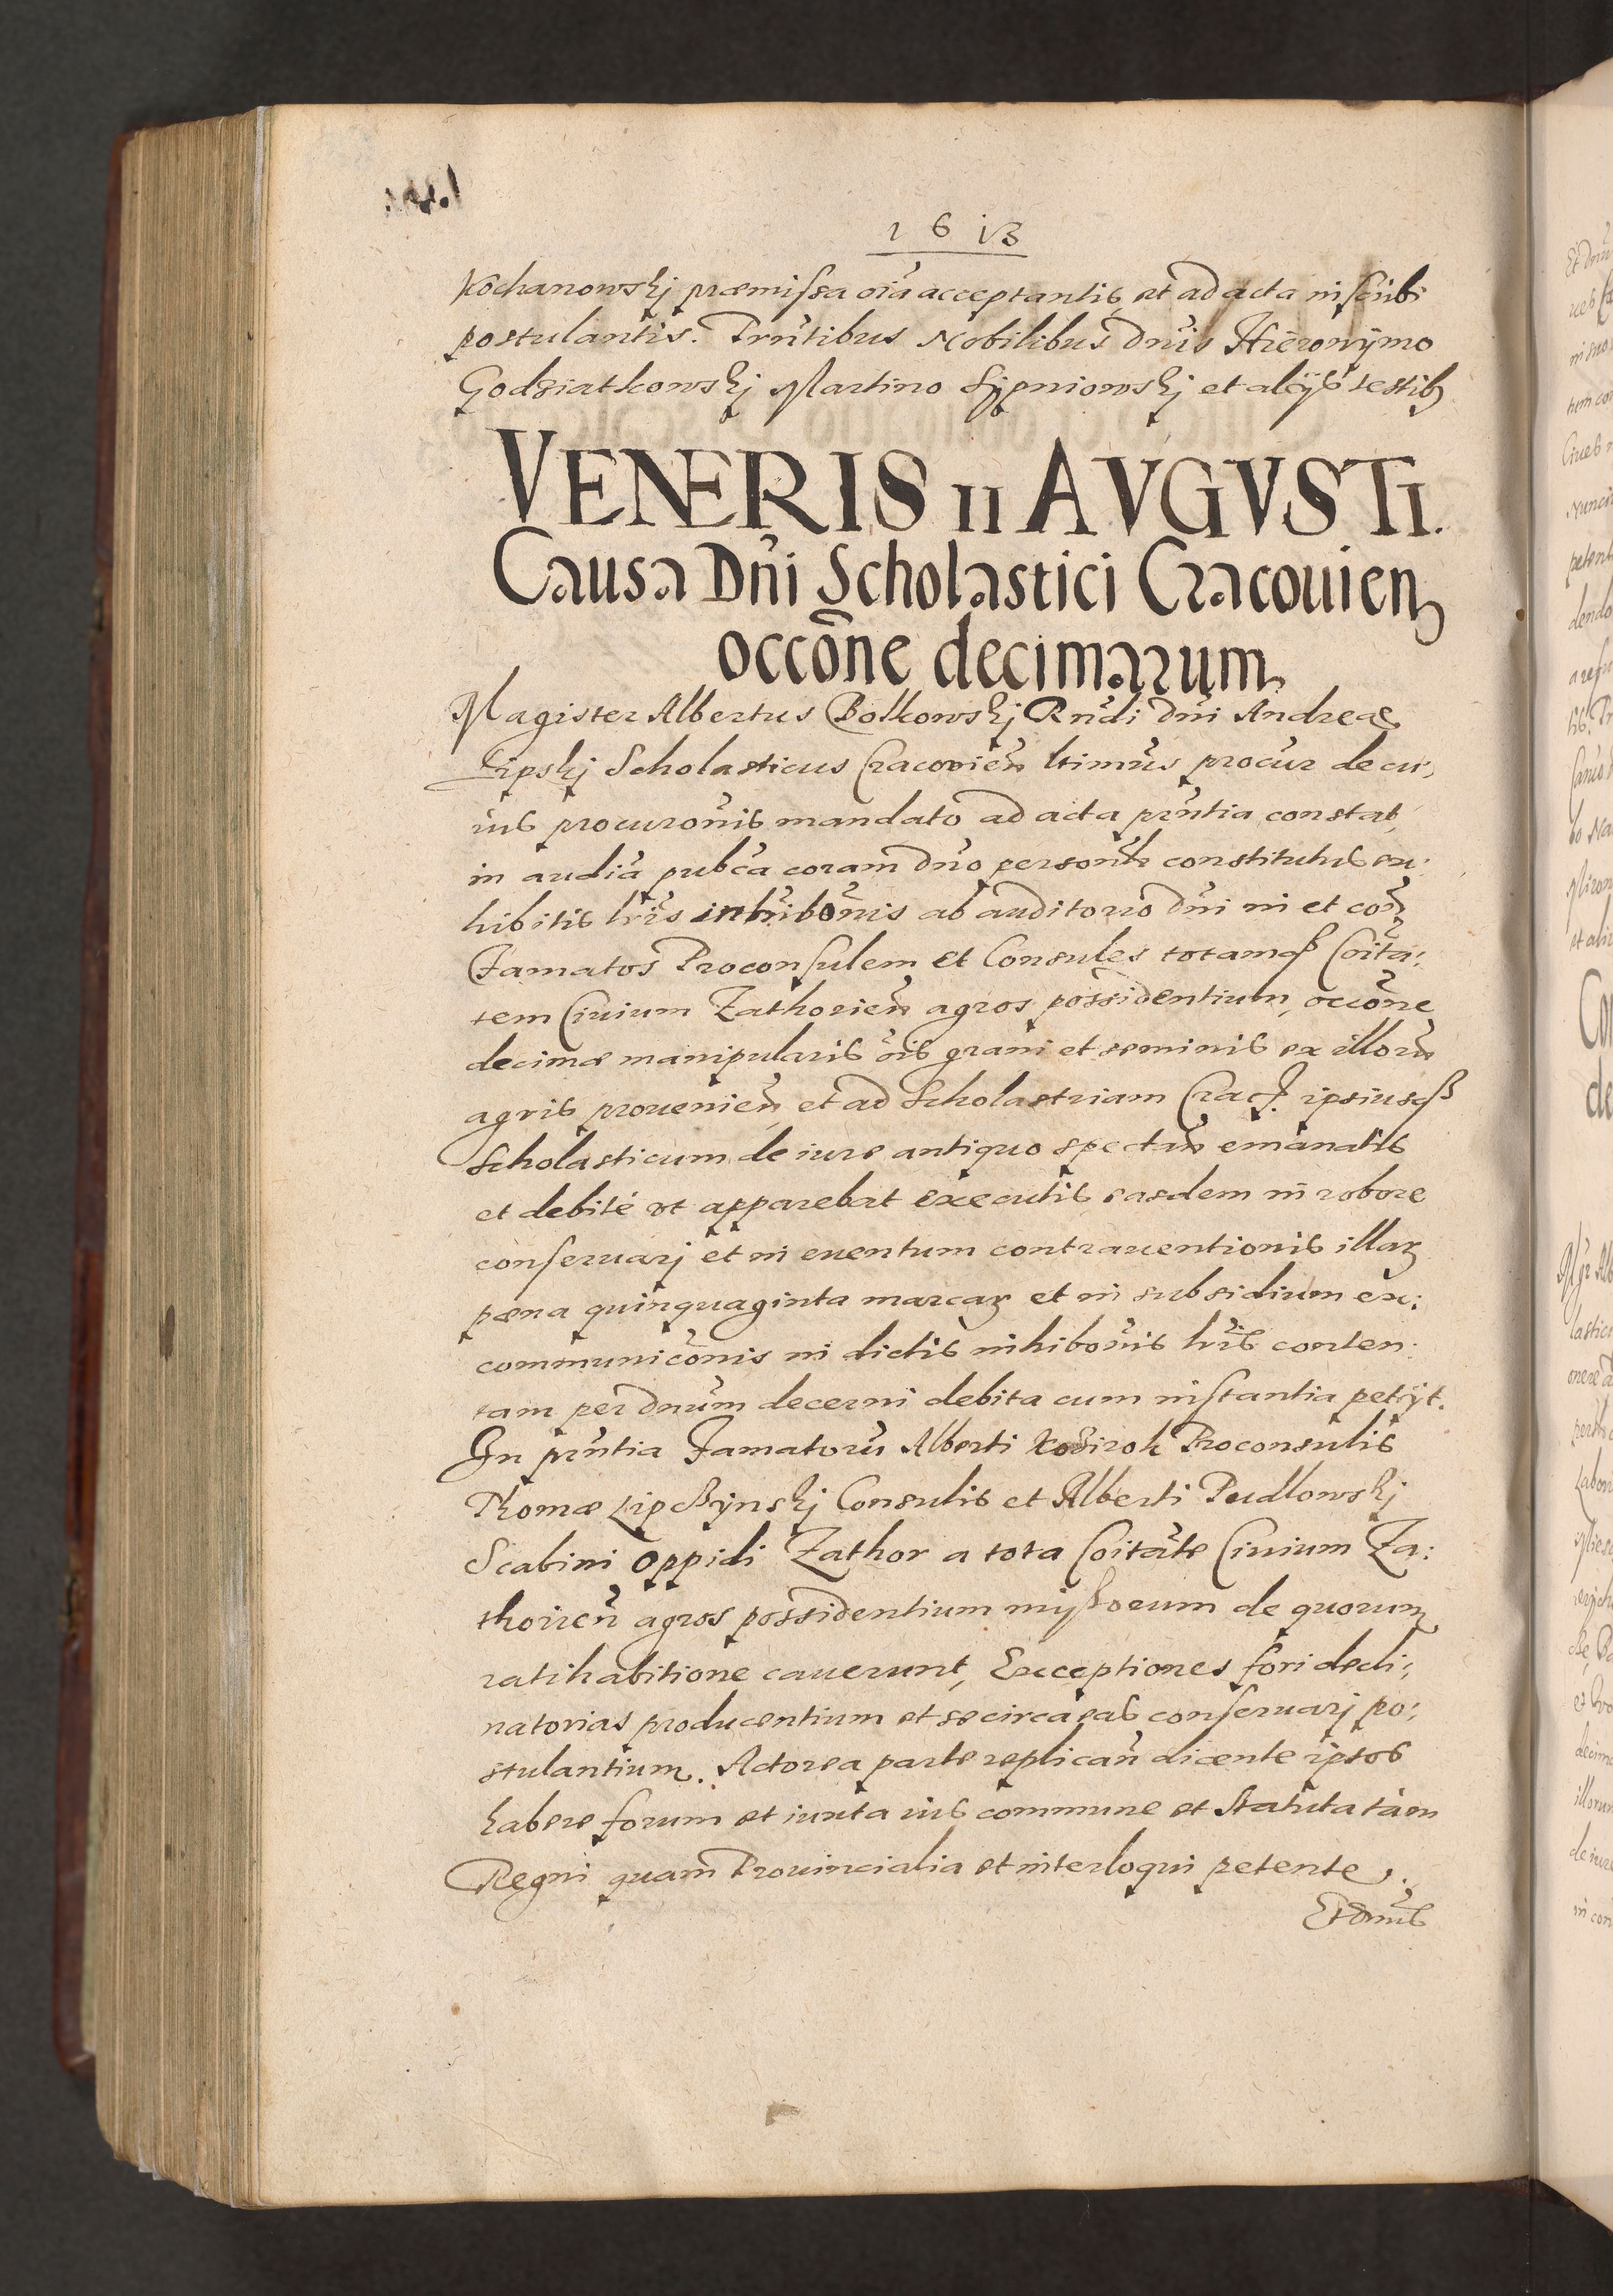 1613
Kochanowskj præmissa oīa acceptantis et ad acta inscribi
postulantis. Prntibus Nobilibus Dnis Hieronÿmo
Godziatkowskj Martino Sÿpniowskj et alijs testib₃
VENERIS II AVGVSTI.
Causa Dni Scholastici Cracouien
occōne decimarum
Magister Albertus Bolkowskj Rndi Dni Andreæ
Lipskj Scholasticus Cracouien ltimus procur de cu,
ius procuronis mandato ad acta prntia constat
in audia pubca coram Dno personlr constitutus ex:
hibitis lris inhibonis ab auditorio Dni in et con
Famatos Proconsulem et Consules totamq₃ Coita:
tem Ciuium Zathorien agros possidentium, occōne
decimæ manipularis ois grani et seminis ex illoru
agris prouenien et ad Scholastriam Crac. ipsiusq₃
Scholasticum de iure antiquo spectan emanatis
et debite vt apparebat executis easdem in robore
conseruarj et in euentum contrauentionis illar₃
pæna quinquaginta marcar₃ et in subsidium ex:
communicōnis in dictis inhibonis lris conten:
tam per Dnum decerni debita cum instantia petÿt.
In prntia Famatoru Alberti Proconsulis
Thomæ Lipczÿnskj Consulis et Alberti Pudlowskj
Scabini Oppidi Zathor a tota Coitate Ciuium Za:
thorien agros possidentium missorum de quorum
ratihabitione cauerunt, Exceptiones fori decli:
natorias producentium et se circa eas conseruarj po:
stulantium. Actorea parte replican dicente ipsos
habere forum et iuxta ius commune et Statuta tam
Regni quam Prouincialia et interloqui petente.
Et Dnus